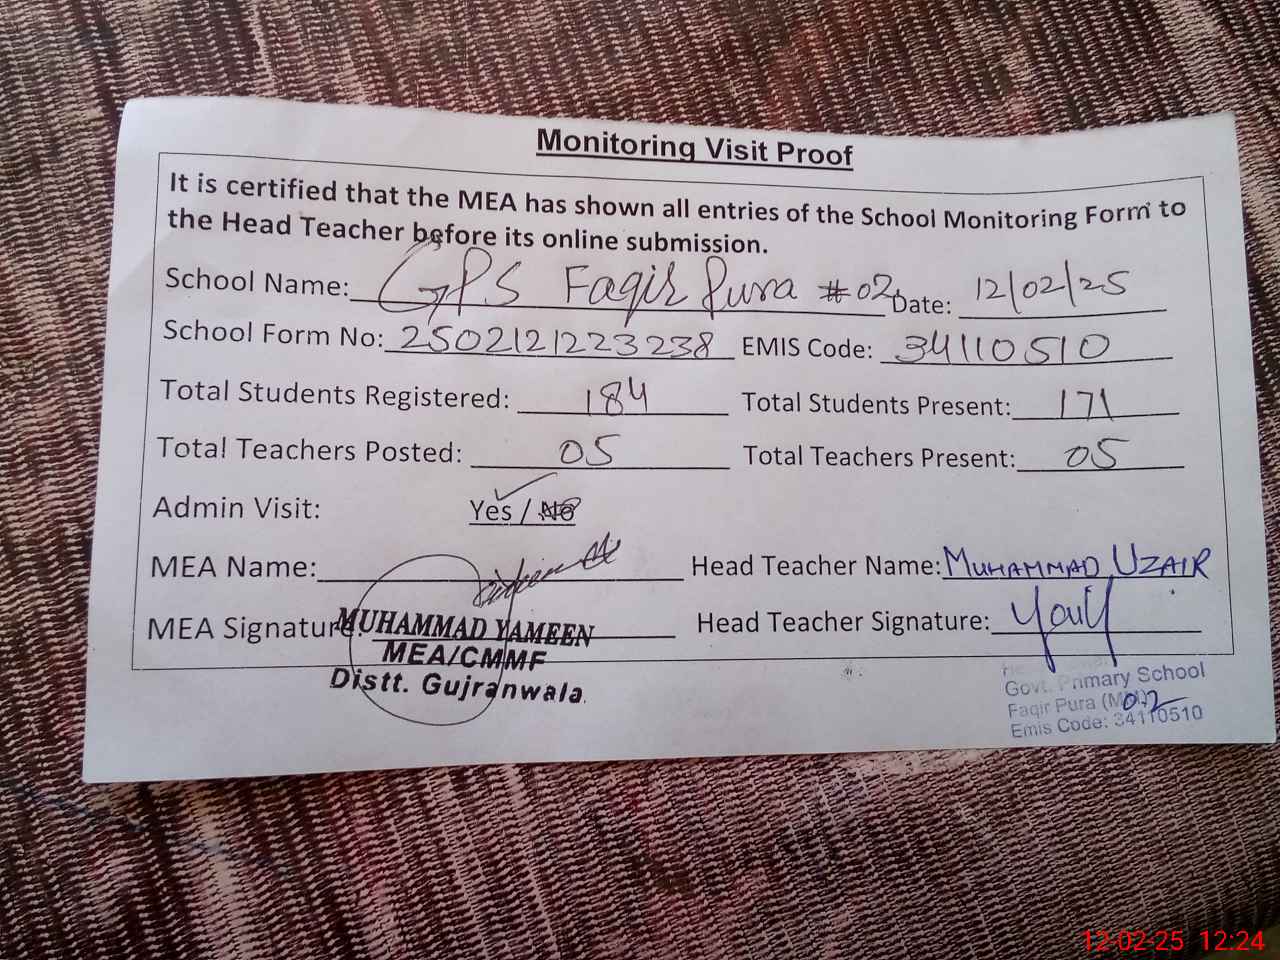 Monitoring Visit Proof
It is certified that the MEA has shown all entries of the School Monitoring Form to
the Head Teacher before its online submission.
School Name: GPS Faqir Pura #02 Date: 12/02/25
School Form No: 2502121223238 EMIS Code: 34110510
Total Students Registered: 184 Total Students Present: 171
Total Teachers Posted: 05 Total Teachers Present: 05
Admin Visit: Yes / No
MEA Name: Head Teacher Name: MUHAMMAD UZAIR
MEA Signature: Head Teacher Signature:
MUHAMMAD YAMEEN
MEA/CMMF
Distt. Gujranwala
Govt. Primary School
Faqir Pura 02
Emis Code: 34110510
12-02-25 12:24